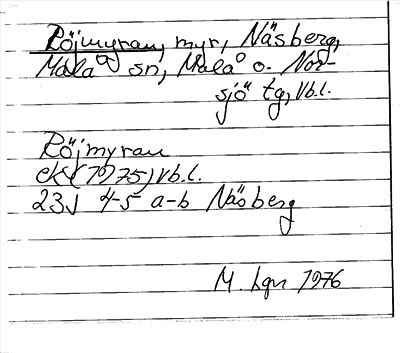 Röjmyran, myr, Näsberg,
Malå sn, Malå o. Nor-
sjö tg, Vb.l.
Röjmyran
ek (1975) Vb.l.
23J 4-5 a-b Näsberg
M. Lgn 1976